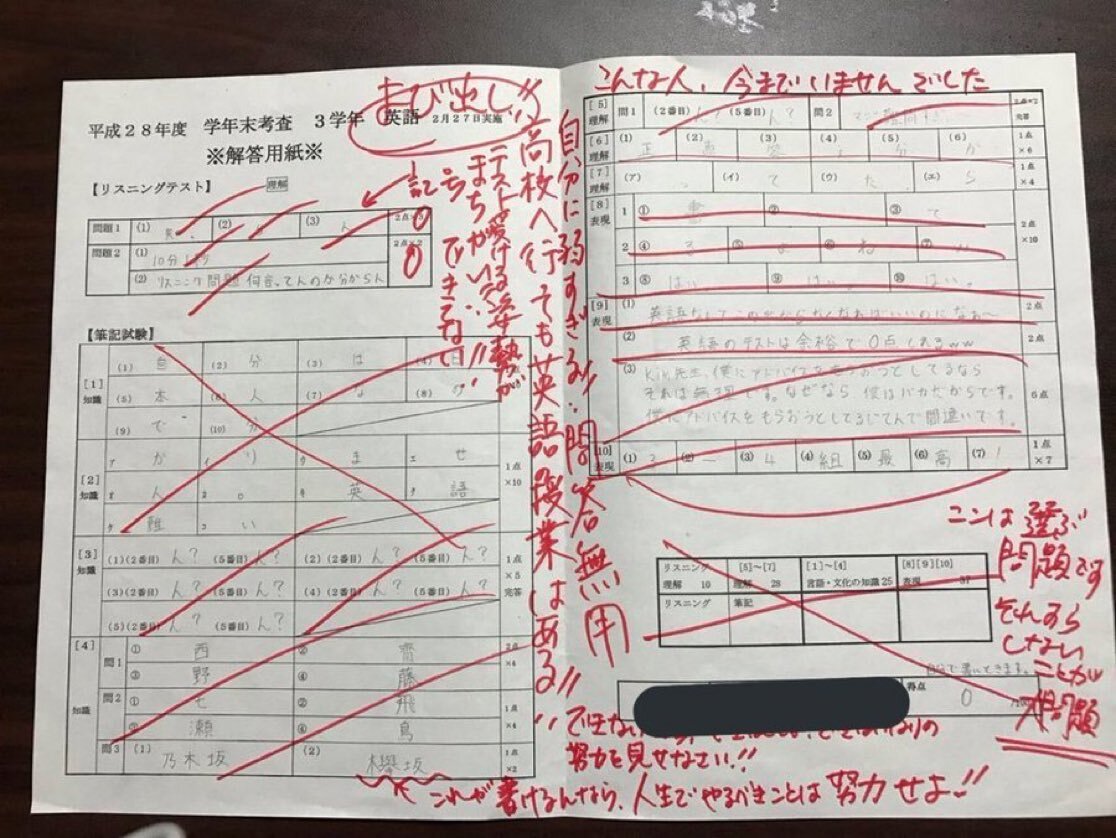 よび出し!!
平成28年度 学年末考査 3学年 英語 2月27日実施
※解答用紙※
【リスニングテスト】 理解
記号
テスト受ける姿勢が
まちがい
できてない!!
問題1 (1) (2) (3) ん 2点×3 0
問題2 (1) 10分 2点×2 0
(2) リスニング問題何言ってんのか分からん
高校へ行っても英語授業はある!!
自分に弱すぎる!!問答無用
【筆記試験】
[1] 知識
(1) 自 (2) 分 (3) は (4) 日
(5) 本 (6) 人 (7) な (8) の
(9) で (10) 分
[2] 知識 1点×10
ア か イ り ウ ま エ せ
オ ん カ 。 キ 英 ク 語
ケ 難 コ い
[3] 知識 1点×5 完答
(1)(2番目) ん? (5番目) ん? (2)(2番目) ん? (5番目) ん?
(3)(2番目) ん? (5番目) ん? (4)(2番目) ん? (5番目) ん?
(5)(2番目) ん? (5番目) ん?
[4] 知識
問1 ① 西 ② 齋 2点×4
③ 野 ④ 藤
問2 ① 七 ② 飛 1点×4
③ 瀬 ④ 鳥
問3 (1) 乃木坂 (2) 欅坂 1点×2
これが書けるんなら、人生でやるべきことは努力せよ!!
こんな人、今までいませんでした
[5] 理解 問1 (2番目) ん? (5番目) ん? 問2 2点×2 完答
[6] 理解 (1) 正 (2) 直 (3) (4) (5) 分 (6) か 1点×6
[7] 理解 (ア) (イ) て (ウ) た (エ) ら 1点×4
[8] 表現 2点×10
1 ① 書 ② ③ て
2 ④ る ⑤ よ ⑥ ね ⑦
3 ⑧ はい。 ⑨ はい。 ⑩ はい。
[9] 表現
(1) 英語なんてこの世からなくなればいいのになぁ〜 2点
(2) 英語のテストは余裕で0点とれるww 2点
(3) Kim先生、僕にアドバイスをもらおうとしてるなら
それは無理です。なぜなら 僕はバカだからです。
僕にアドバイスをもらおうとしてるじてんで間違いです。
6点
[10] 表現 (1) 3 (2) ー (3) 4 (4) 組 (5) 最 (6) 高 (7) ! 1点×7
ここは選ぶ
問題です
それすら
しない
ことが
大問題
リスニング 理解 10 [5]〜[7] 理解 28 [1]〜[4] 言語・文化の知識 25 [8][9][10] 表現 37
リスニング 筆記
自分で書いてきます。
得点 0 /100
できない
なりの
努力を見せなさい!!